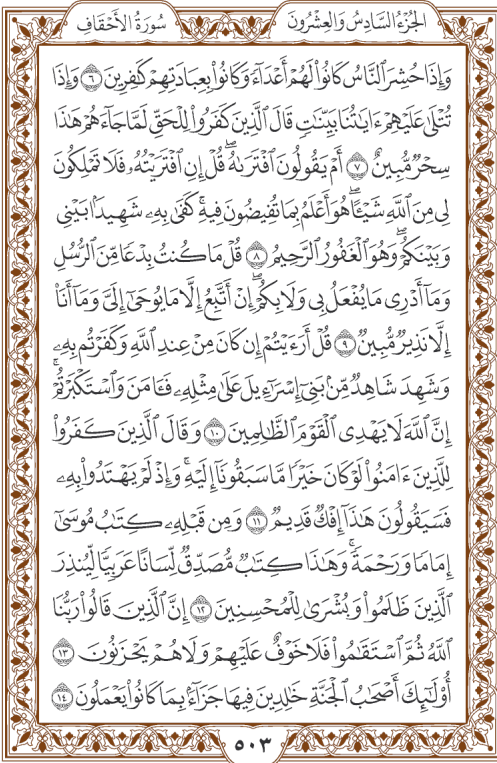 الجُزْءُ السَّادِسُ وَالعِشْرُونَ سُورَةُ الأَحْقَافِ
وَإِذَا حُشِرَ ٱلنَّاسُ كَانُوا۟ لَهُمْ أَعْدَآءً وَكَانُوا۟ بِعِبَادَتِهِمْ كَٰفِرِينَ ٦ وَإِذَا
تُتْلَىٰ عَلَيْهِمْ ءَايَٰتُنَا بَيِّنَٰتٍ قَالَ ٱلَّذِينَ كَفَرُوا۟ لِلْحَقِّ لَمَّا جَآءَهُمْ هَٰذَا
سِحْرٌ مُّبِينٌ ٧ أَمْ يَقُولُونَ ٱفْتَرَىٰهُ ۖ قُلْ إِنِ ٱفْتَرَيْتُهُۥ فَلَا تَمْلِكُونَ
لِى مِنَ ٱللَّهِ شَيْـًٔا ۖ هُوَ أَعْلَمُ بِمَا تُفِيضُونَ فِيهِ ۚ كَفَىٰ بِهِۦ شَهِيدًۢا بَيْنِى
وَبَيْنَكُمْ ۖ وَهُوَ ٱلْغَفُورُ ٱلرَّحِيمُ ٨ قُلْ مَا كُنتُ بِدْعًا مِّنَ ٱلرُّسُلِ
وَمَآ أَدْرِى مَا يُفْعَلُ بِى وَلَا بِكُمْ ۖ إِنْ أَتَّبِعُ إِلَّا مَا يُوحَىٰٓ إِلَىَّ وَمَآ أَنَا۠
إِلَّا نَذِيرٌ مُّبِينٌ ٩ قُلْ أَرَءَيْتُمْ إِن كَانَ مِنْ عِندِ ٱللَّهِ وَكَفَرْتُم بِهِۦ
وَشَهِدَ شَاهِدٌ مِّنۢ بَنِىٓ إِسْرَٰٓءِيلَ عَلَىٰ مِثْلِهِۦ فَـَٔامَنَ وَٱسْتَكْبَرْتُمْ ۖ
إِنَّ ٱللَّهَ لَا يَهْدِى ٱلْقَوْمَ ٱلظَّٰلِمِينَ ١٠ وَقَالَ ٱلَّذِينَ كَفَرُوا۟
لِلَّذِينَ ءَامَنُوا۟ لَوْ كَانَ خَيْرًا مَّا سَبَقُونَآ إِلَيْهِ ۚ وَإِذْ لَمْ يَهْتَدُوا۟ بِهِۦ
فَسَيَقُولُونَ هَٰذَآ إِفْكٌ قَدِيمٌ ١١ وَمِن قَبْلِهِۦ كِتَٰبُ مُوسَىٰٓ
إِمَامًا وَرَحْمَةً ۚ وَهَٰذَا كِتَٰبٌ مُّصَدِّقٌ لِّسَانًا عَرَبِيًّا لِّيُنذِرَ
ٱلَّذِينَ ظَلَمُوا۟ وَبُشْرَىٰ لِلْمُحْسِنِينَ ١٢ إِنَّ ٱلَّذِينَ قَالُوا۟ رَبُّنَا
ٱللَّهُ ثُمَّ ٱسْتَقَٰمُوا۟ فَلَا خَوْفٌ عَلَيْهِمْ وَلَا هُمْ يَحْزَنُونَ ١٣
أُو۟لَٰٓئِكَ أَصْحَٰبُ ٱلْجَنَّةِ خَٰلِدِينَ فِيهَا جَزَآءًۢ بِمَا كَانُوا۟ يَعْمَلُونَ ١٤
٥٠٣